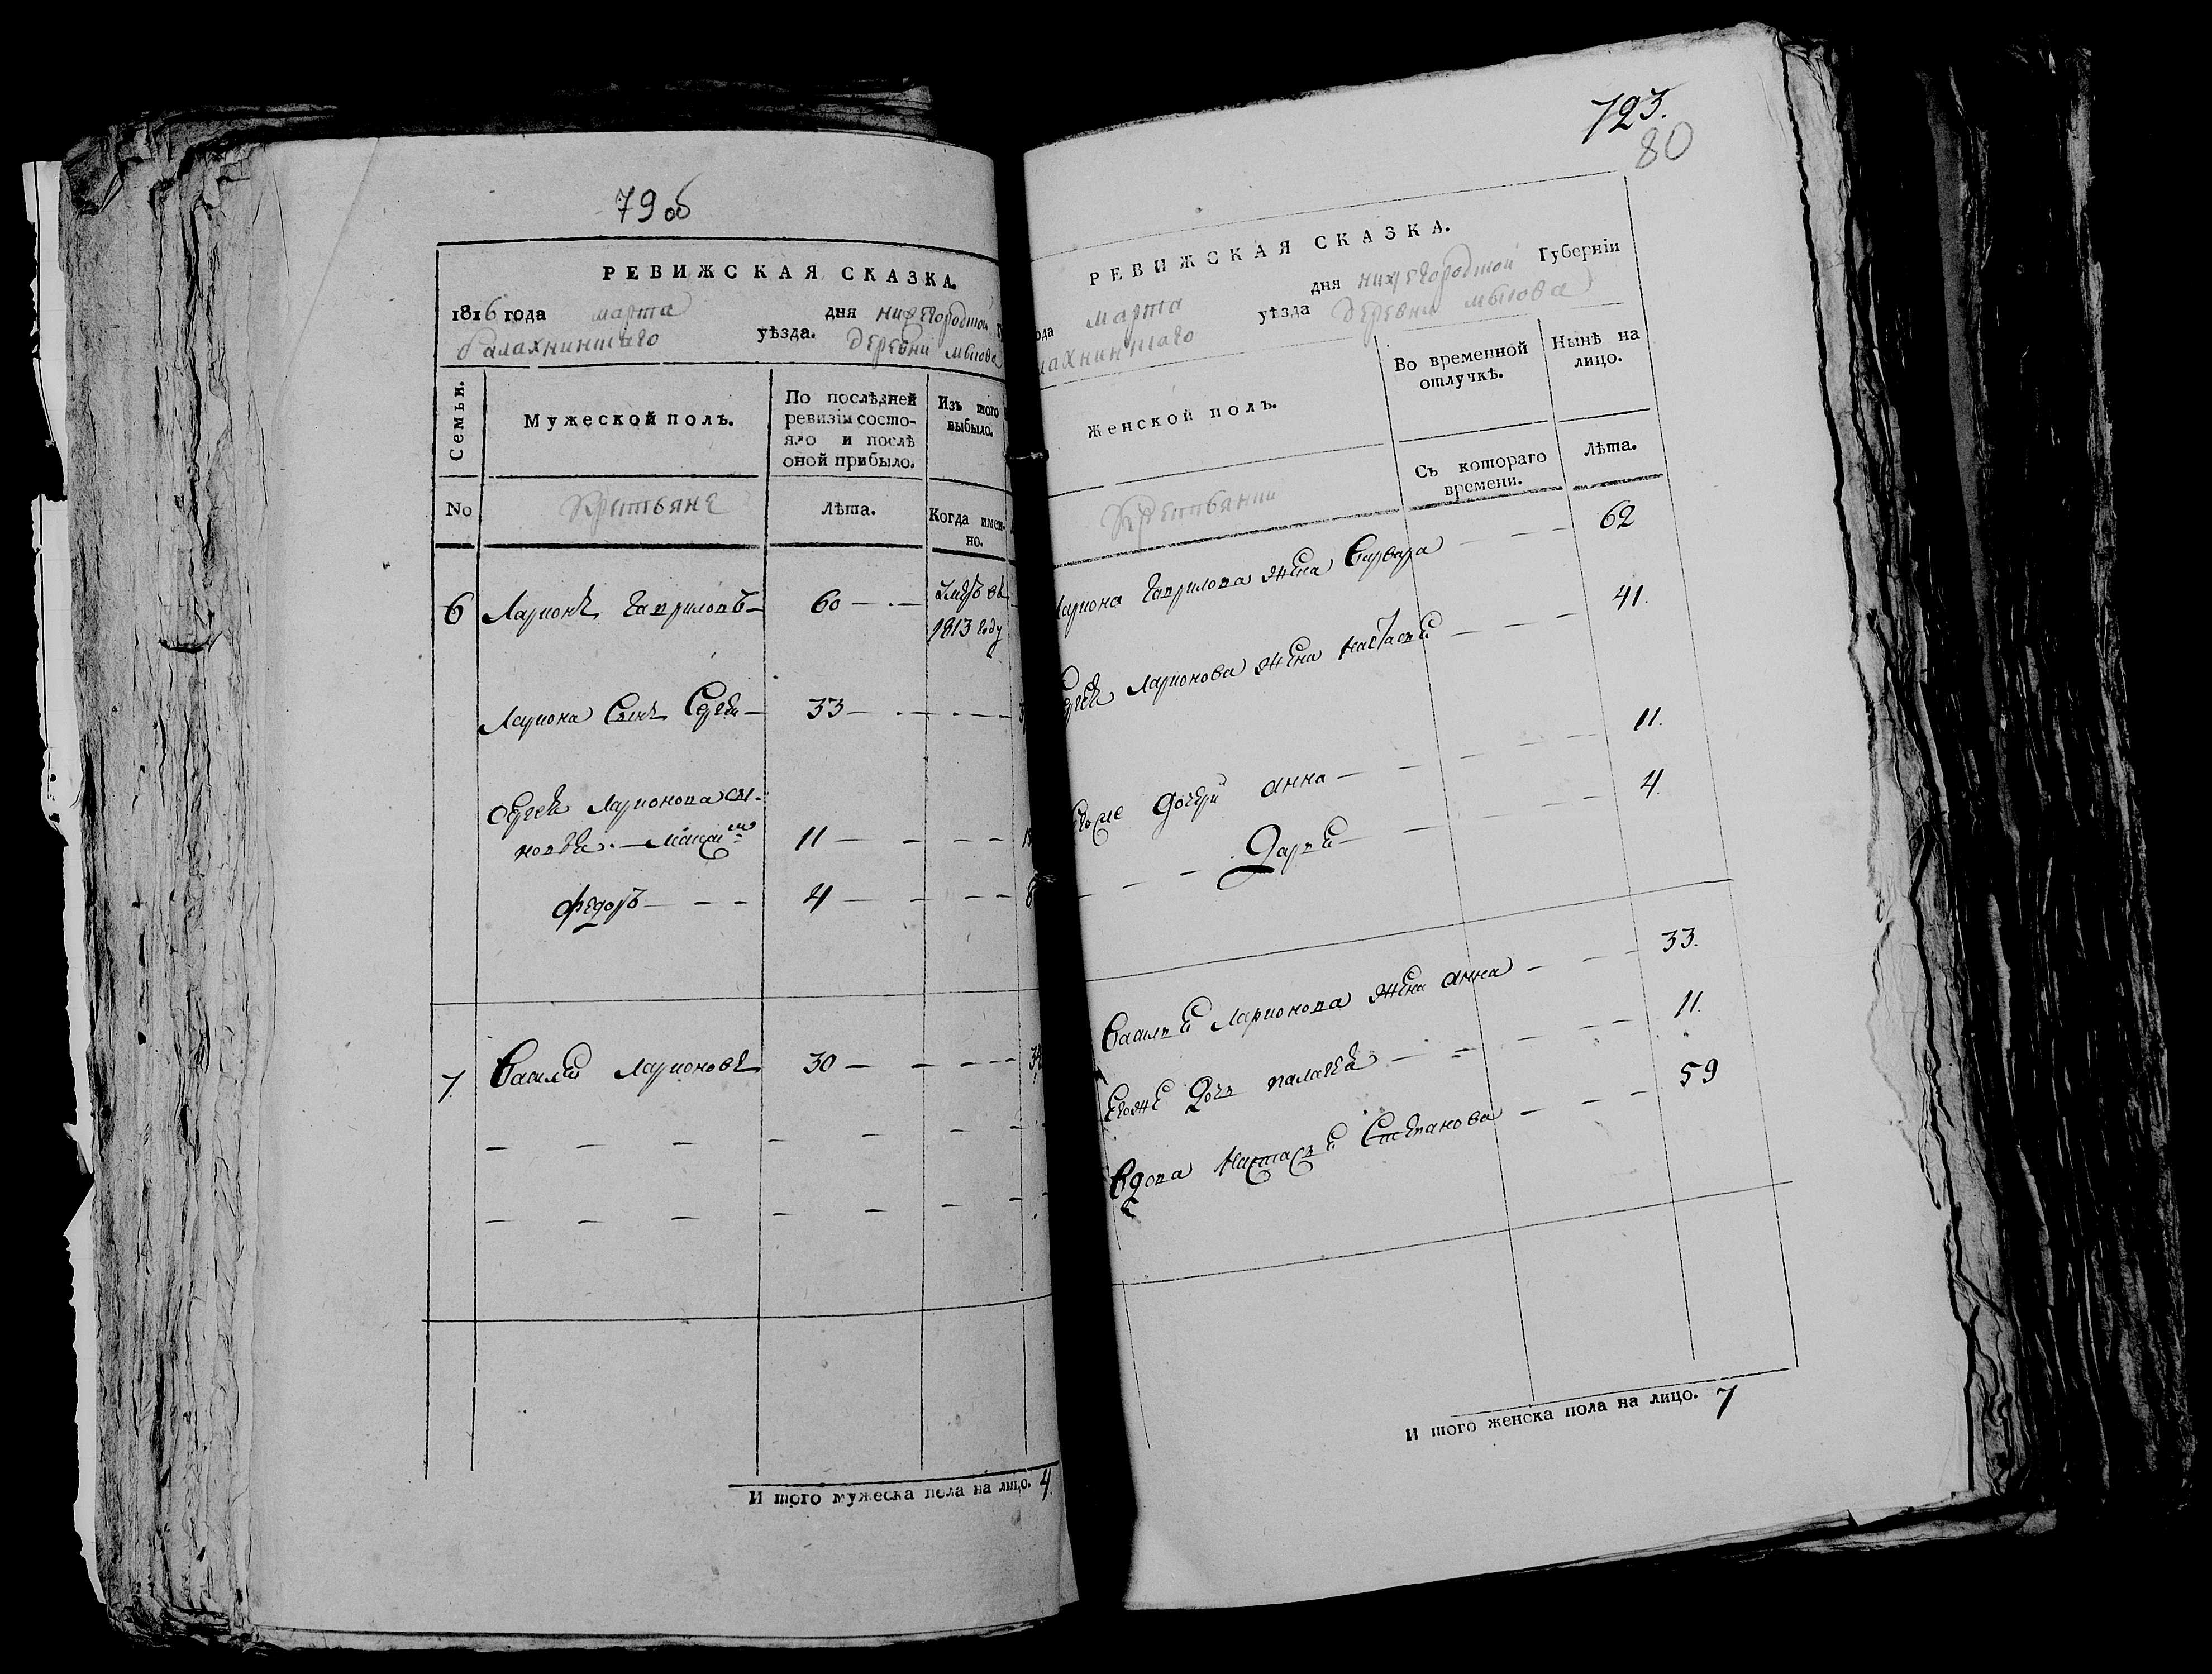 79 об
РЕВИЖСКАЯ СКАЗКА.
1816 года марта дня нижегородской
балахнинскаго уѣзда. деревни мысова
Семьи.
Мужеской полъ.
По послѣдней ревизіи состо-
яло и послѣ
оной прибыло.
Изъ того
выбыло.
No
Крестьяне
Лѣта.
Когда имен-
но.
6 Ларионъ Гавриловъ 60
Умеръ въ
1813 году
Лариона Сынъ Сергей 33
Сергея Ларионова сы-
новья. Макси 11
Федоръ 4
7. Василий Ларионовъ 30
И того мужеска пола на лицо. 4.
723.
80
РЕВИЖСКАЯ СКАЗКА.
марта дня нижегородской Губерніи
уѣзда деревни мысова
Женской полъ.
Во временной
отлучкѣ.
Нынѣ на
лицо.
Съ котораго
времени.
Лѣта.
Крестьянки
Лариона Гаврилова жена Варвара 62
Сергея Ларионова жена настасья 41.
дочери анна 11.
Дарья 4.
Василья Ларионова жена анна 33.
Егоже Дочь палагея 11.
Вдова Настасья Степанова 59
И того женска пола на лицо. 7